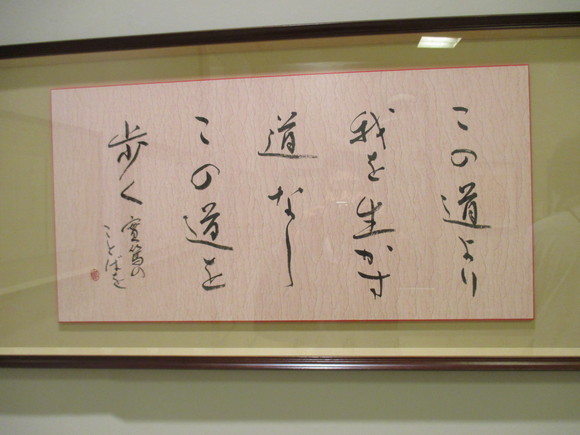 この道より
我を生かす
道なし
この道を
歩く
實篤の
ことばを